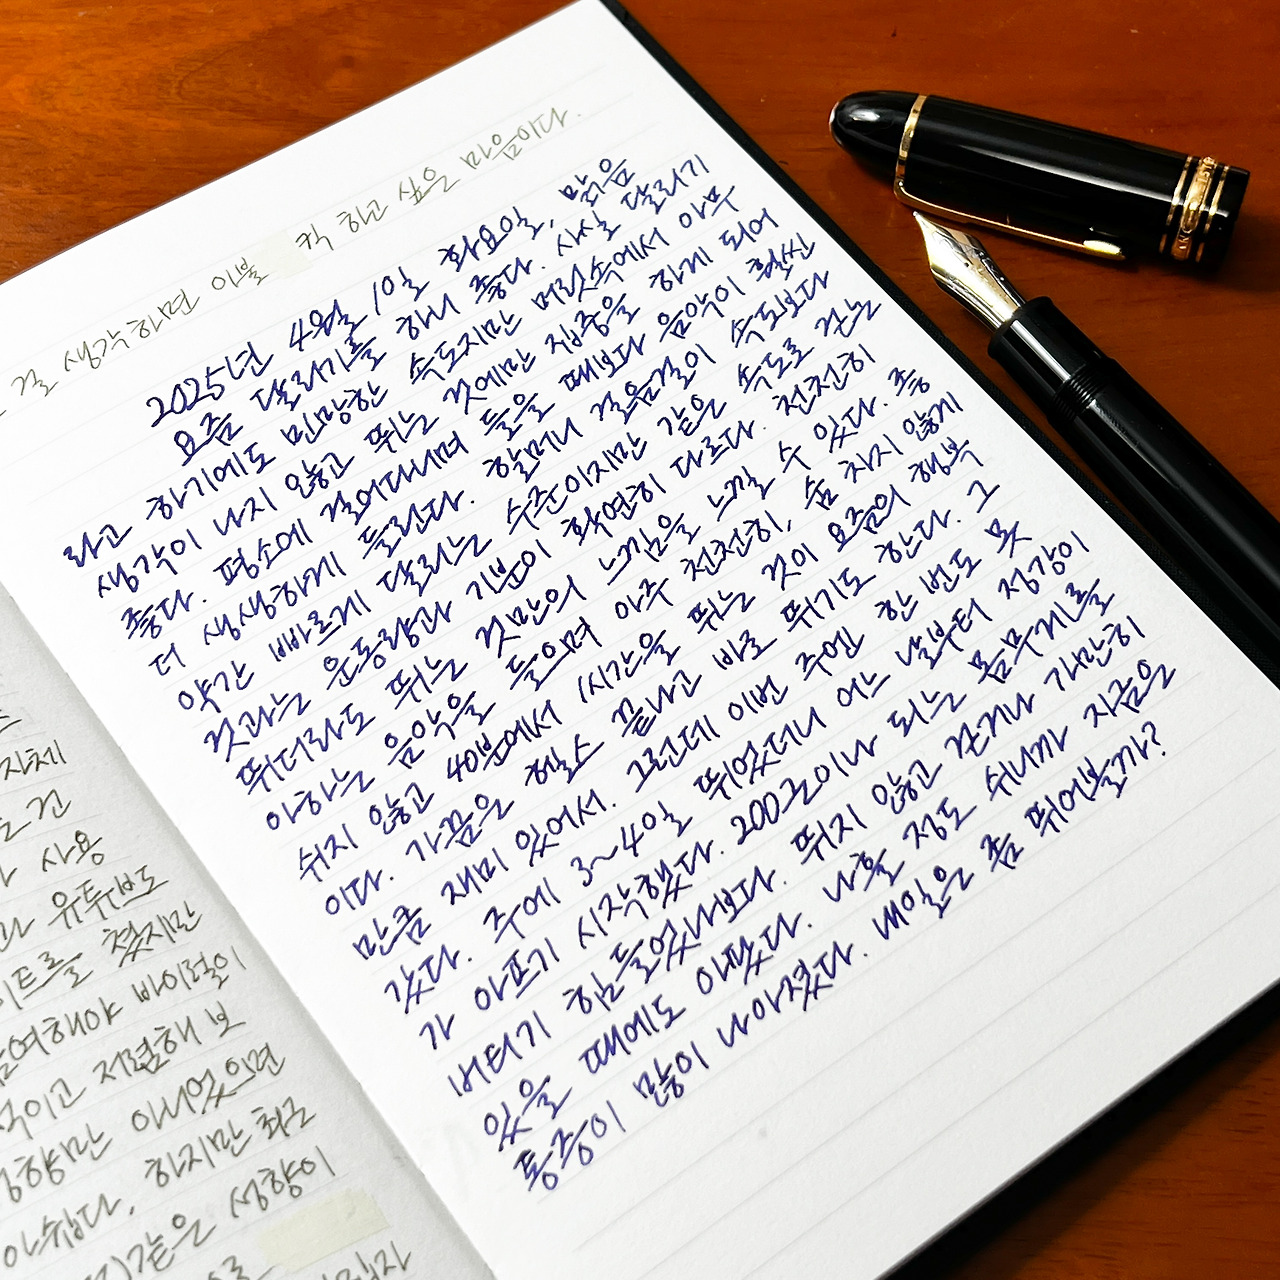 자체
건
사용
유투브도
쳤지만
바이럴이
저렴해 보
아니었으면
아쉽다. 하지만 최근
같은 성향이
걸 생각하면 이불 킥 하고 싶은 마음이다.
2025년 4월 1일 화요일, 맑음
요즘 달리기를 하니 좋다. 사실 달리기
라고 하기에도 민망한 속도지만 머릿속에서 아무
생각이 나지 않고 뛰는 것에만 집중을 하게 되어
좋다. 평소에 걸어다니며 들을 때보다 음악이 훨씬
더 생생하게 들린다. 할머니 걸음걸이 속도보다
약간 빠르게 달리는 수준이지만 같은 속도로 걷는
것과는 운동량과 기분이 확연히 다르다. 천천히
뛰더라도 뛰는 것만의 느낌을 느낄 수 있다. 좋
아하는 음악을 들으며 아주 천천히, 숨 차지 않게
쉬지 않고 40분에서 1시간을 뛰는 것이 요즘의 행복
이다. 가끔은 헬스 끝나고 바로 뛰기도 한다. 그
만큼 재미 있어서. 그런데 이번 주엔 한 번도 못
갔다. 주에 3~4일 뛰었더니 어느 날부터 정강이
가 아프기 시작했다. 200근이나 되는 몸무게를
버티기 힘들었나보다. 뛰지 않고 걷거나 가만히
있을 때에도 아팠다. 나흘 정도 쉬니까 지금은
통증이 많이 나아졌다. 내일은 좀 뛰어볼까?